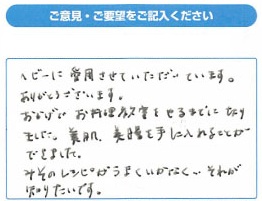 ご意見・ご要望をご記入ください
ヘビーに愛用させていただいています。
ありがとうございます。
おかげで お料理教室をやるまでになり
ました。美肌、美腸を手に入れることが
できました。
みそのレシピがうまくいかなく… それが
知りたいです。